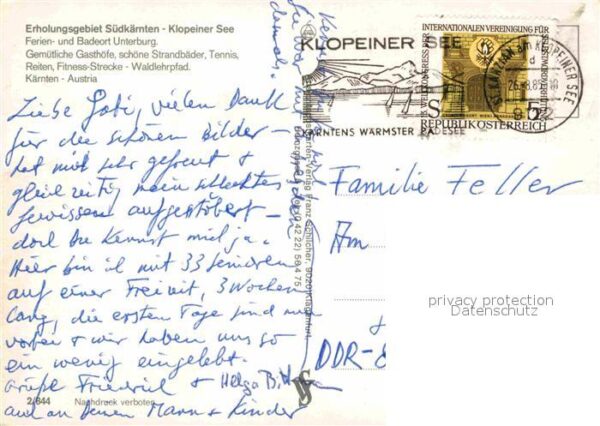 Erholungsgebiet Südkärnten - Klopeiner See
Ferien- und Badeort Unterburg.
Gemütliche Gasthöfe, schöne Strandbäder, Tennis,
Reiten, Fitness-Strecke - Waldlehrpfad.
Kärnten - Austria
Liebe Gabi, vielen Dank
für die schönen Bilder -
hat mich sehr gefreut +
gleichzeitig mein schlechtes
Gewissen aufgestöbert -
doch Du kennst mich ja.
Hier bin ich mit 33 Senioren
auf einer Freizeit, 3 Wochen
lang, die ersten Tage sind nun
vorbei + wir haben uns so
ein wenig eingelebt.
Grüße Friedrich + Helga
auch an Deinen Mann + Kinder
2/644 Nachdruck verboten
KLOPEINER SEE
KÄRNTENS WÄRMSTER BADESEE
KLOPEINER SEE
INTERNATIONALEN VEREINIGUNG FÜR
S 5
REPUBLIK ÖSTERREICH
Familie Feller
Am
DDR-
privacy protection
Datenschutz